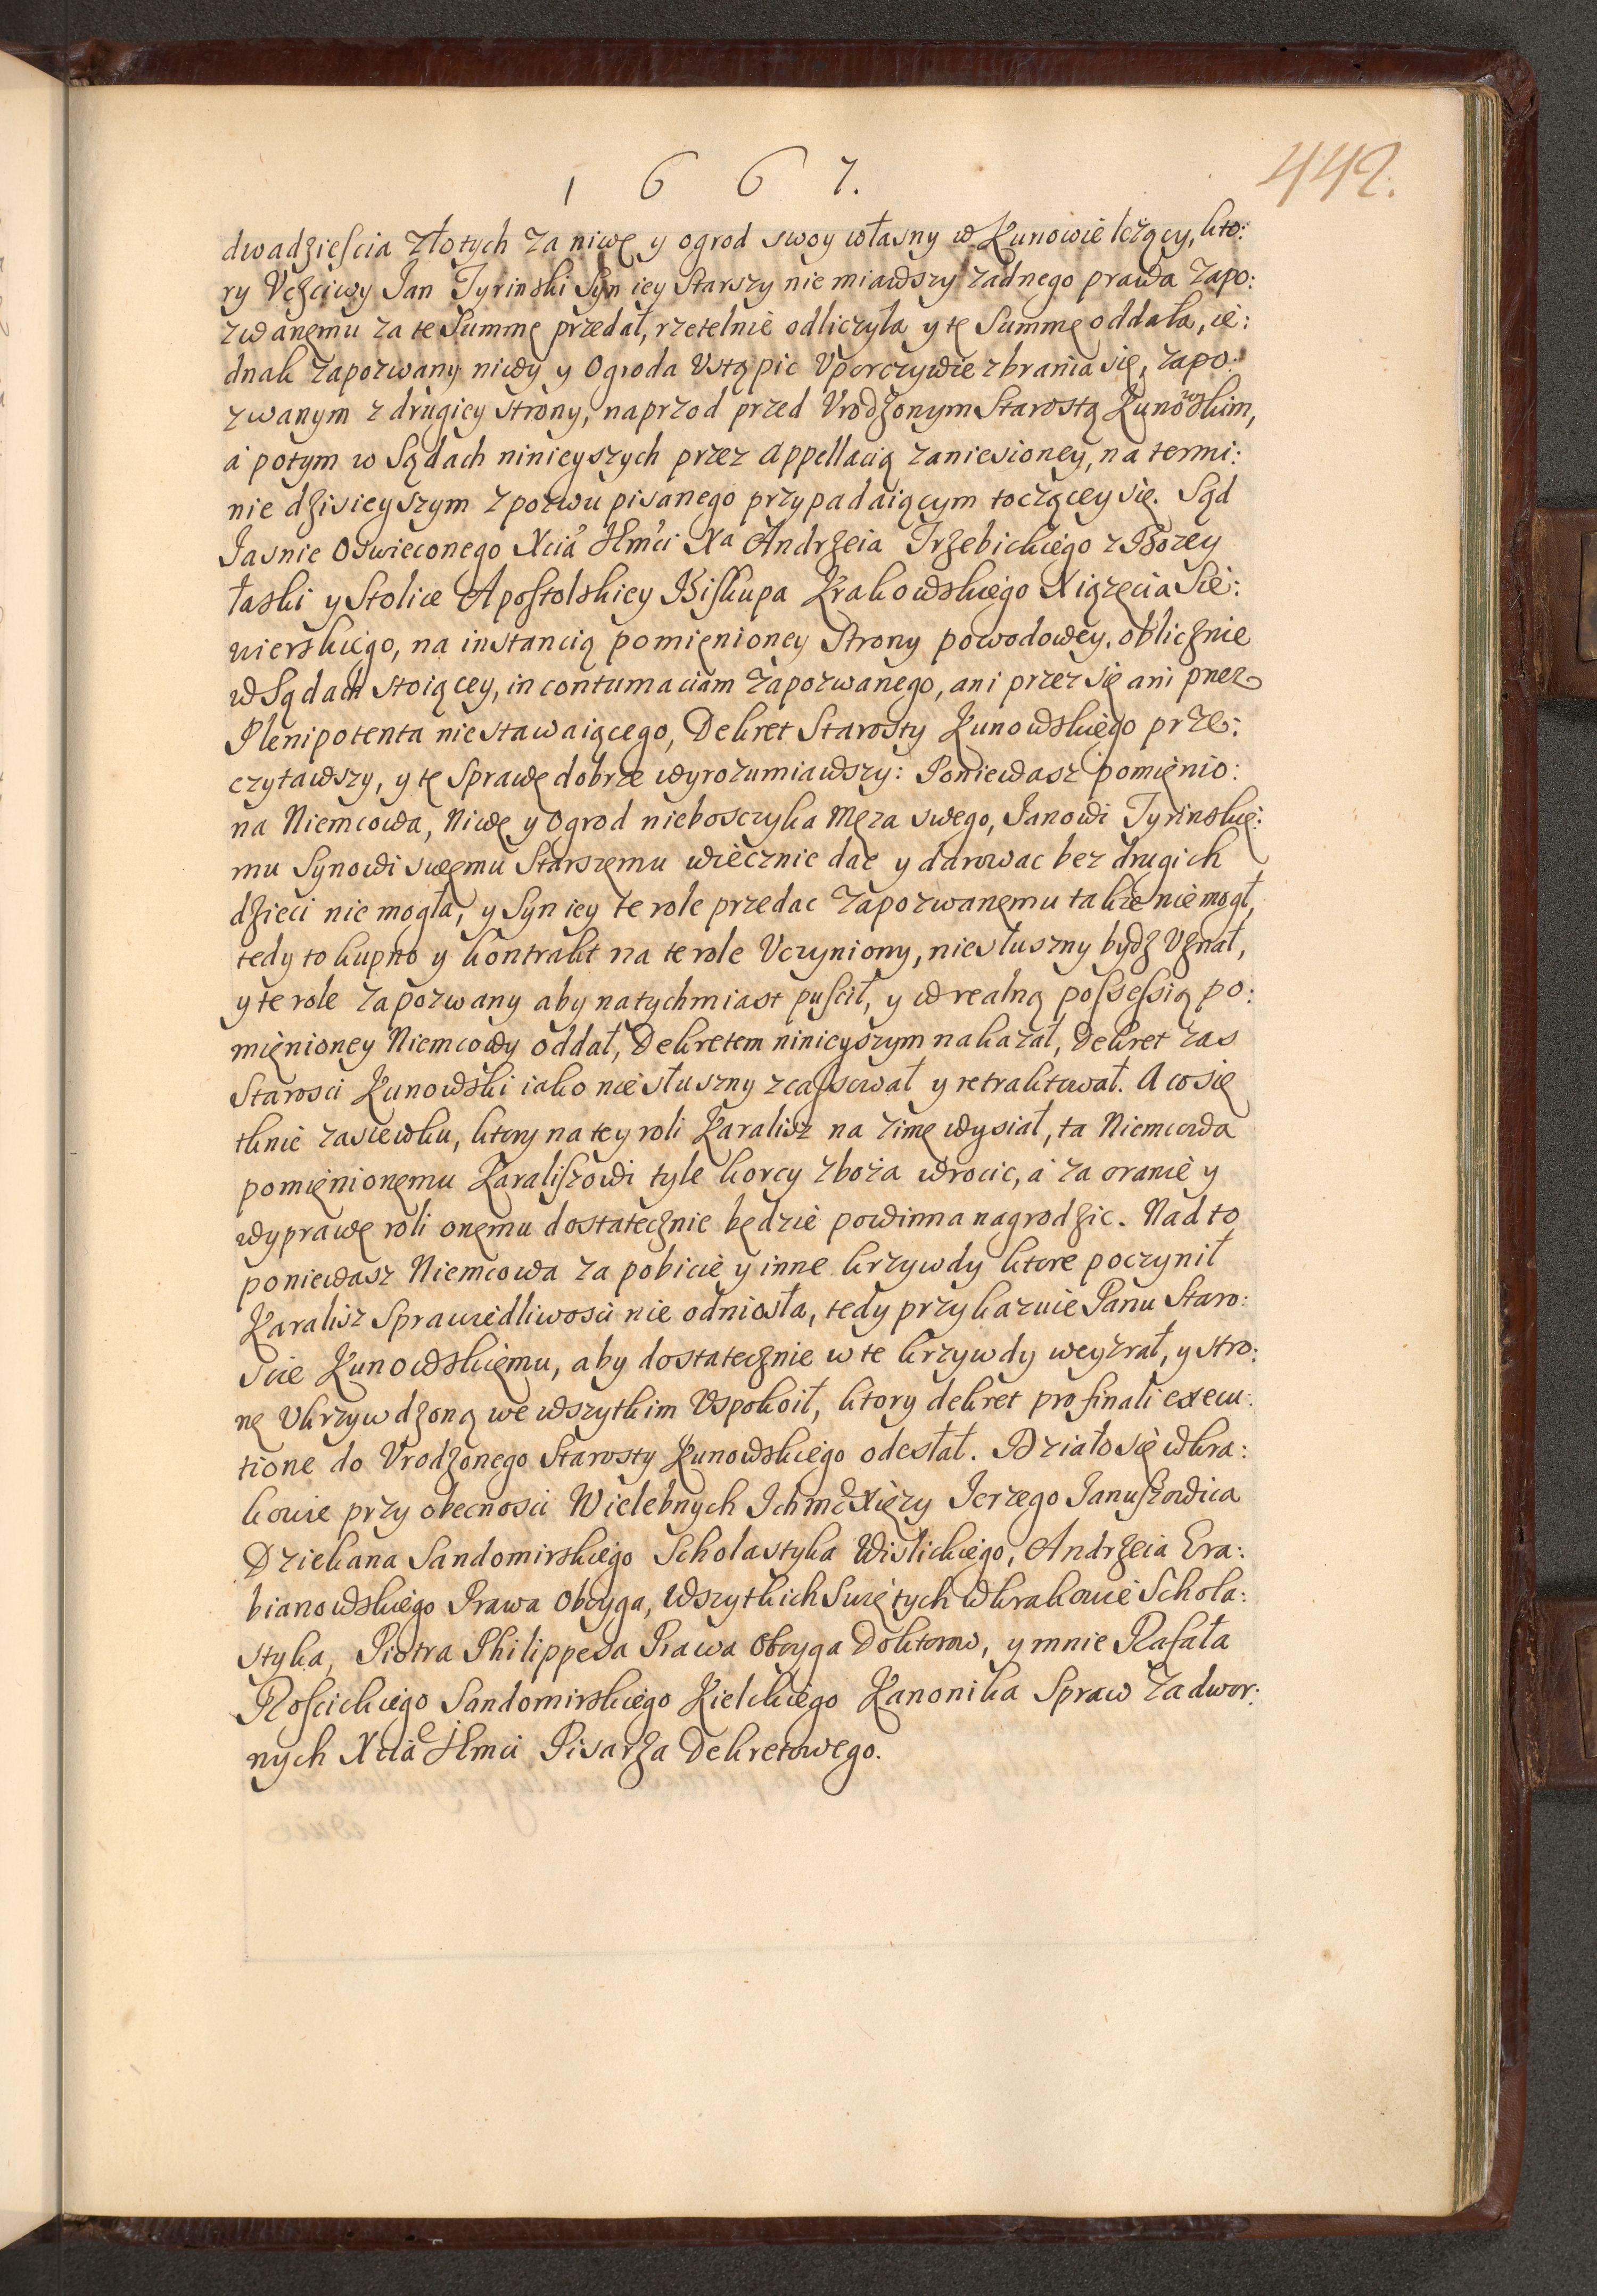 1 6 6 7.
442.
dwadzieścia złotych za niwę y ogrod swoy własny w Kunowie leżący, kto:
ry Vczciwy Jan Tyrinski Syn iey Starszy nie miawszy żadnego prawa zapo:
zwanemu za te Summę przedał, rzetelnie odliczyła y tę Summę oddała, ie:
dnak zapozwany niwy y Ogroda Vstąpic Vporczywie zbrania się, zapo:
zwanym z drugiey strony, naprzod przed Vrodzonym Starostą Kunowskim,
a potym w Sądach ninieyszych przez appellacią zaniesioney, na termi:
nie dzisieyszym z pozwu pisanego przypadaiącym toczącey się. Sąd
Jasnie Oswieconego Xcia Jhmci Xa Andrzeia Trzebickiego z Bozey
łaski y Stolice Apostolskiey Biskupa Krakowskiego Xiązęcia Sie:
wierskiego, na instancią pomięnioney Strony powodowey, oblicznie
w Sądach stoiącey, in contumaciam zapozwanego, ani przez się ani przez
Plenipotenta niestawaiącego, Dekret Starosty Kunowskiego prze:
czytawszy, y tę Sprawę dobrze wyrozumiawszy: Poniewasz pomięnio:
na Niemcowa, Niwę y Ogrod nieboszczyka Męza swego, Janowi Tyrinskie:
mu Synowi swemu Starszemu wiecznie dac y darowac bez drugich
dzieci nie mogła, y Syn iey te role przedac zapozwanemu takze nie mogł,
tedy to kupno y kontrakt na te role Vczyniony, niesłuszny bydz Vznał,
y te role zapozwany aby natychmiast puscił, y w realną possessią po:
mięnioney Niemcowy oddał, Dekretem ninieyszym nakazał, Dekret zas
Starosci Kunowski iako niesłuszny zcassował y retraktował. A co się
tknie zasiewku, ktory na tey roli Karalisz na zimę wysiał, ta Niemcowa
pomięnionemu Karaliszowi tyle korcy zboża wrocic, a za oranie y
wyprawę roli onemu dostatecznie będzie powinna nagrodzic. Nad to
poniewasz Niemcowa za pobicie y inne krzywdy ktore poczynił
Karalisz Sprawiedliwosci nie odniosła, tedy przykazuie Panu Staro:
scie Kunowskiemu, aby dostatecznie w te krzywdy weyzrał, y stro:
nę Vkrzywdzoną we wszytkim Vspokoił, ktory dekret pro finali execu:
tione do Vrodzonego Starosty Kunowskiego odesłał. Działo się w Kra:
kowie przy obecnosci Wielebnych Ichmc Xięzy Jerzego Januszowica
Dziekana Sandomirskiego Scholastyka Wislickiego, Andrzeia Gra:
bianowskiego Prawa Oboyga, Wszytkich Swiętych w Krakowie Schola:
styka, Piotra Philippesa Prawa Oboyga Doktorow, y mnie Rafała
Rościckiego Sandomirskiego Kielckiego Kanonika Spraw Zadwor:
nych Xcia Jhmci Pisarza Dekretowego.